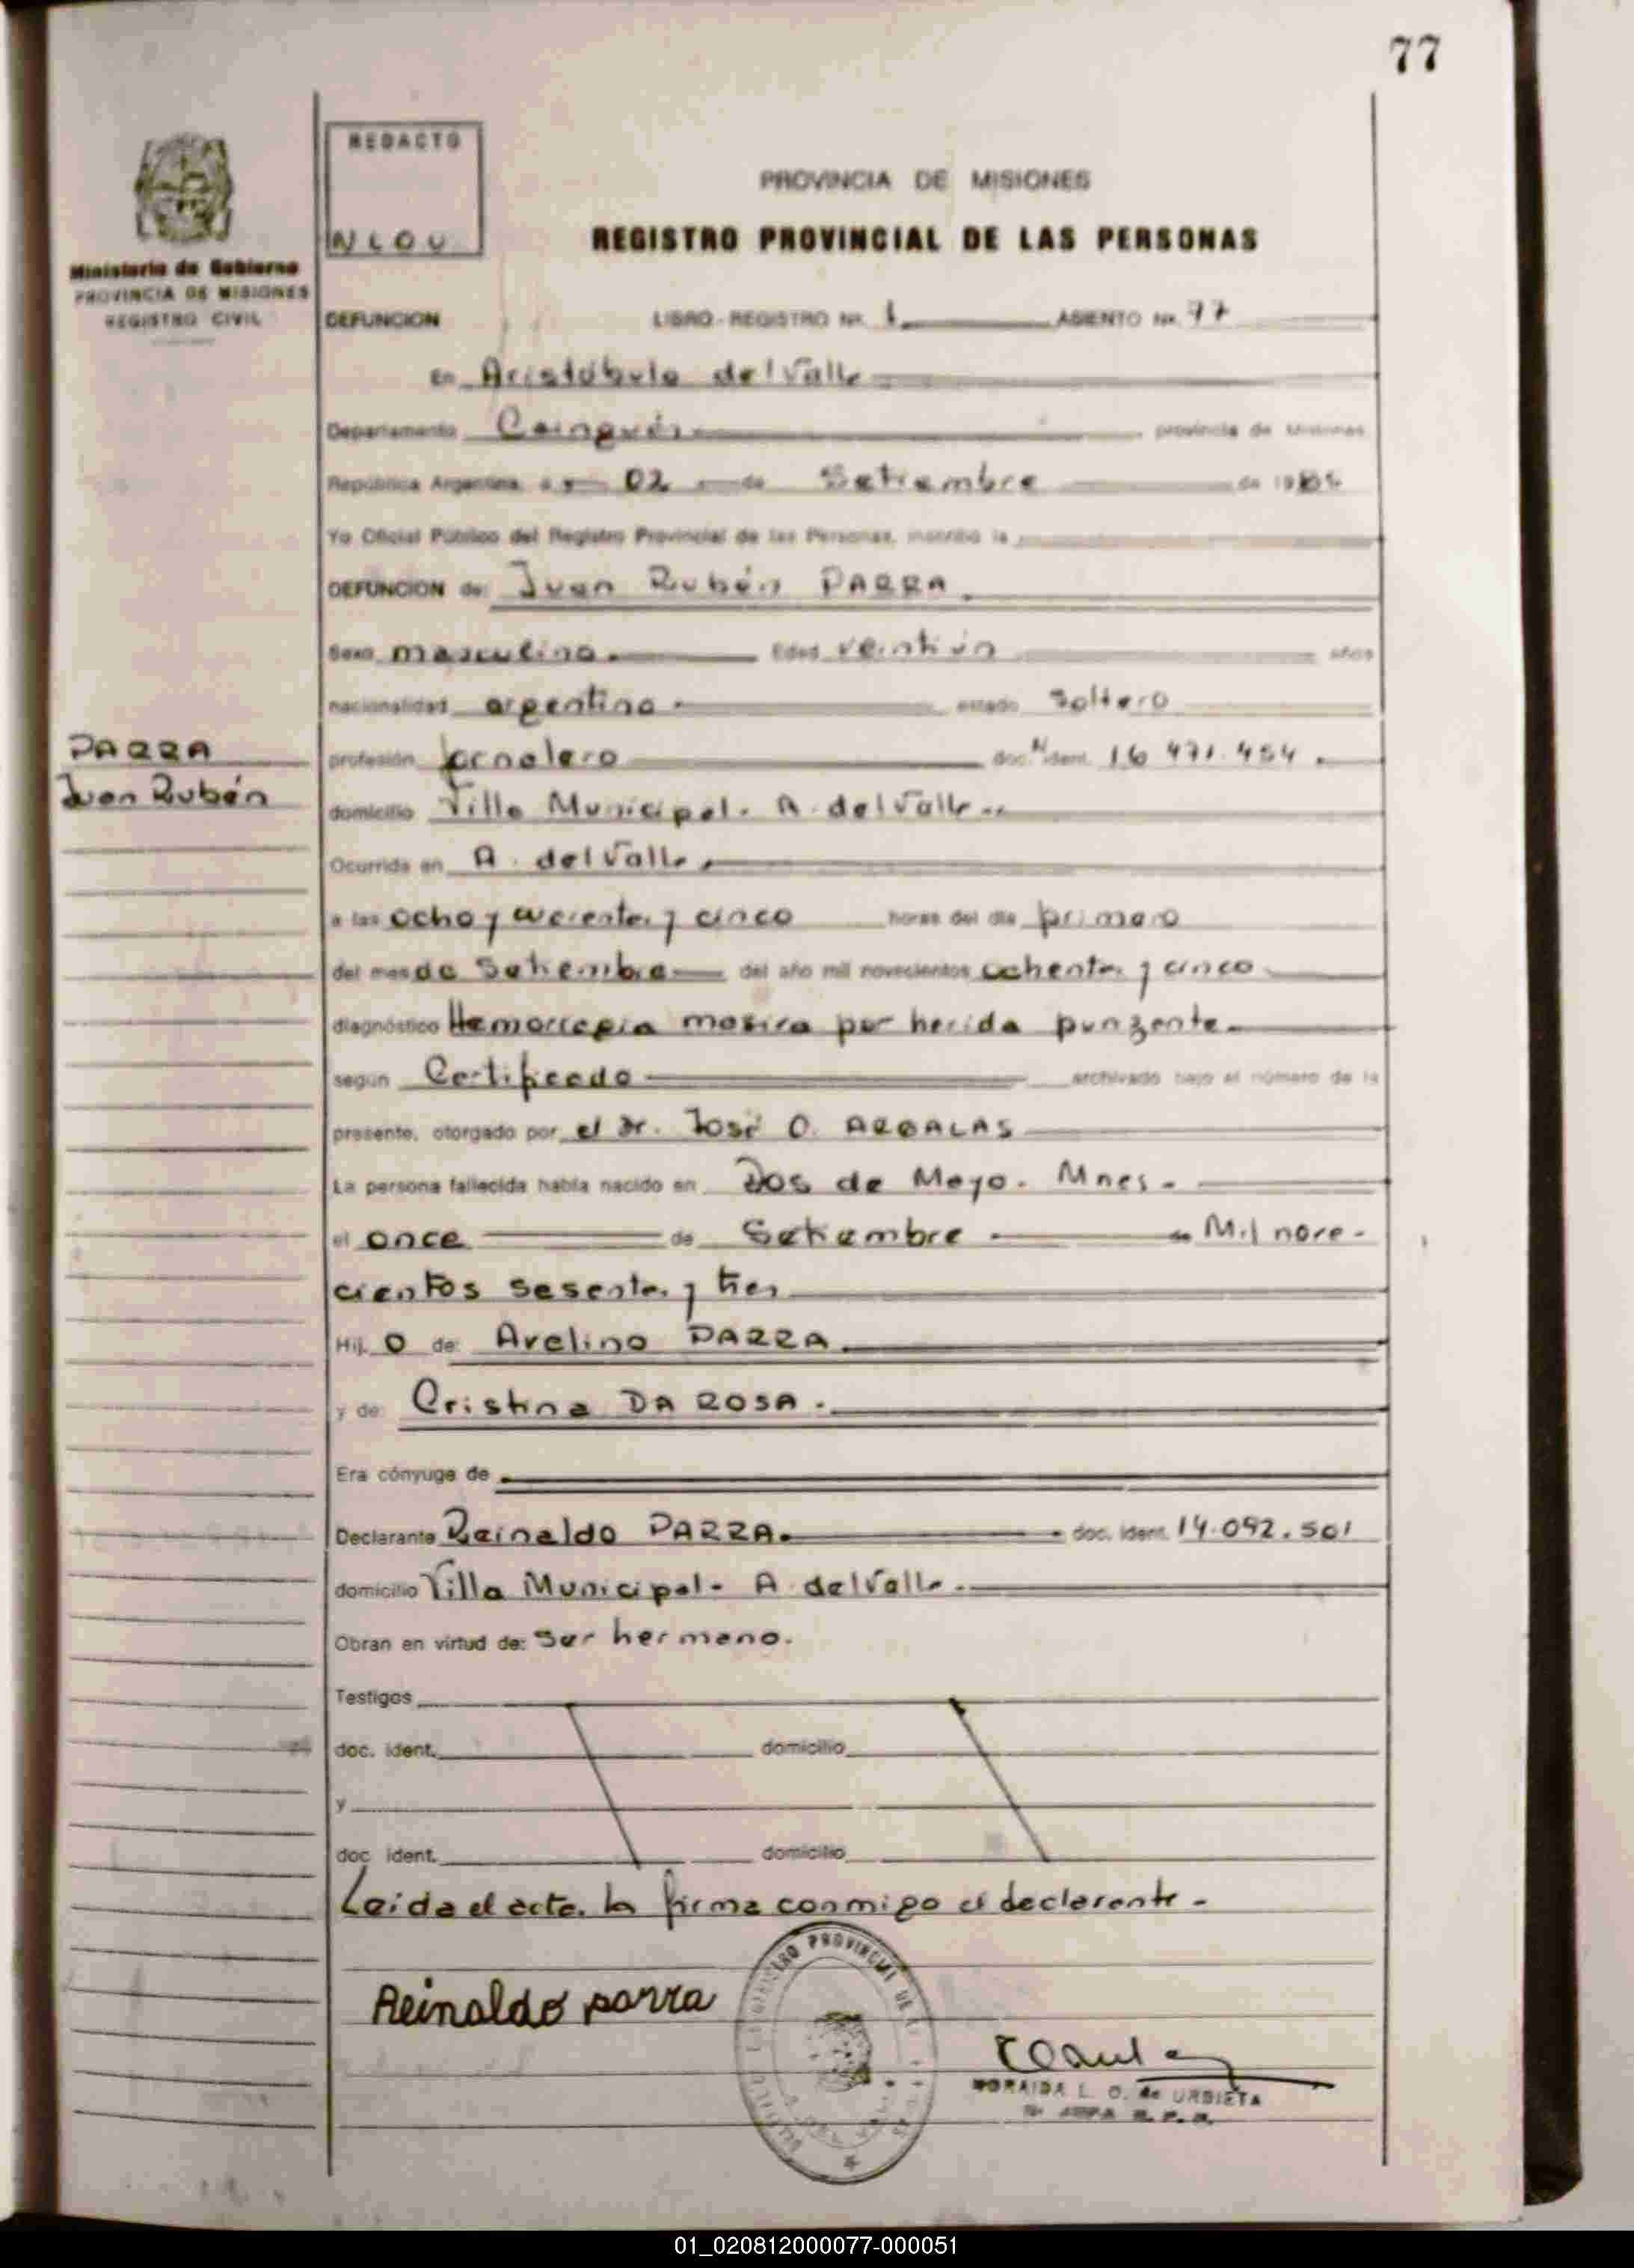 77
REDACTO
NLOU
Ministerio de Gobierno
PROVINCIA DE MISIONES
REGISTRO CIVIL
PROVINCIA DE MISIONES
REGISTRO PROVINCIAL DE LAS PERSONAS
DEFUNCION LIBRO-REGISTRO Nº 1 ASIENTO Nº 77
En Aristóbulo del Valle
Departamento Cainguás provincia de Misiones
República Argentina, a 02 de Setiembre de 1985
Yo Oficial Público del Registro Provincial de las Personas, inscribo la
DEFUNCION de: Juan Rubén PARRA.
Sexo masculino. Edad veintiún años
nacionalidad argentina. estado soltero
PARRA
Juan Rubén
profesión jornalero doc. ident. 16 471.454.
domicilio Villa Municipal. A. del Valle..
Ocurrida en A. del Valle.
a las ocho y cuarenta y cinco horas del día primero
del mes de Setiembre del año mil novecientos ochenta y cinco
diagnóstico Hemorragia masiva por herida punzante.
según Certificado archivado bajo el número de la
presente, otorgado por el Dr. José O. ARGALAS
La persona fallecida había nacido en Dos de Mayo. Mnes.
el once de Setiembre de Mil nove-
cientos sesenta y tres
Hij o de: Avelino PARRA.
y de: Cristina DA ROSA.
Era cónyuge de
Declarante Reinaldo PARRA. doc. ident. 14.092.501
domicilio Villa Municipal. A. del Valle.
Obran en virtud de: ser hermano.
Testigos
doc. ident. domicilio
y
doc. ident. domicilio
Leída el acta, la firma conmigo el declarante.
Reinaldo parra
REGISTRO PROVINCIAL DE
NORAIDA L. O. de URBIETA
01_020812000077-000051